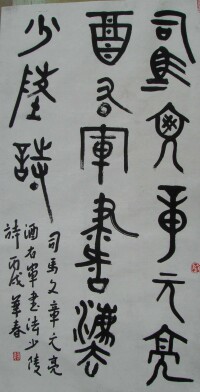 司馬文章元亮
酉右軍書灋
少陵詩
司马文章元亮
酒右軍書法少陵
詩 丙戌 春